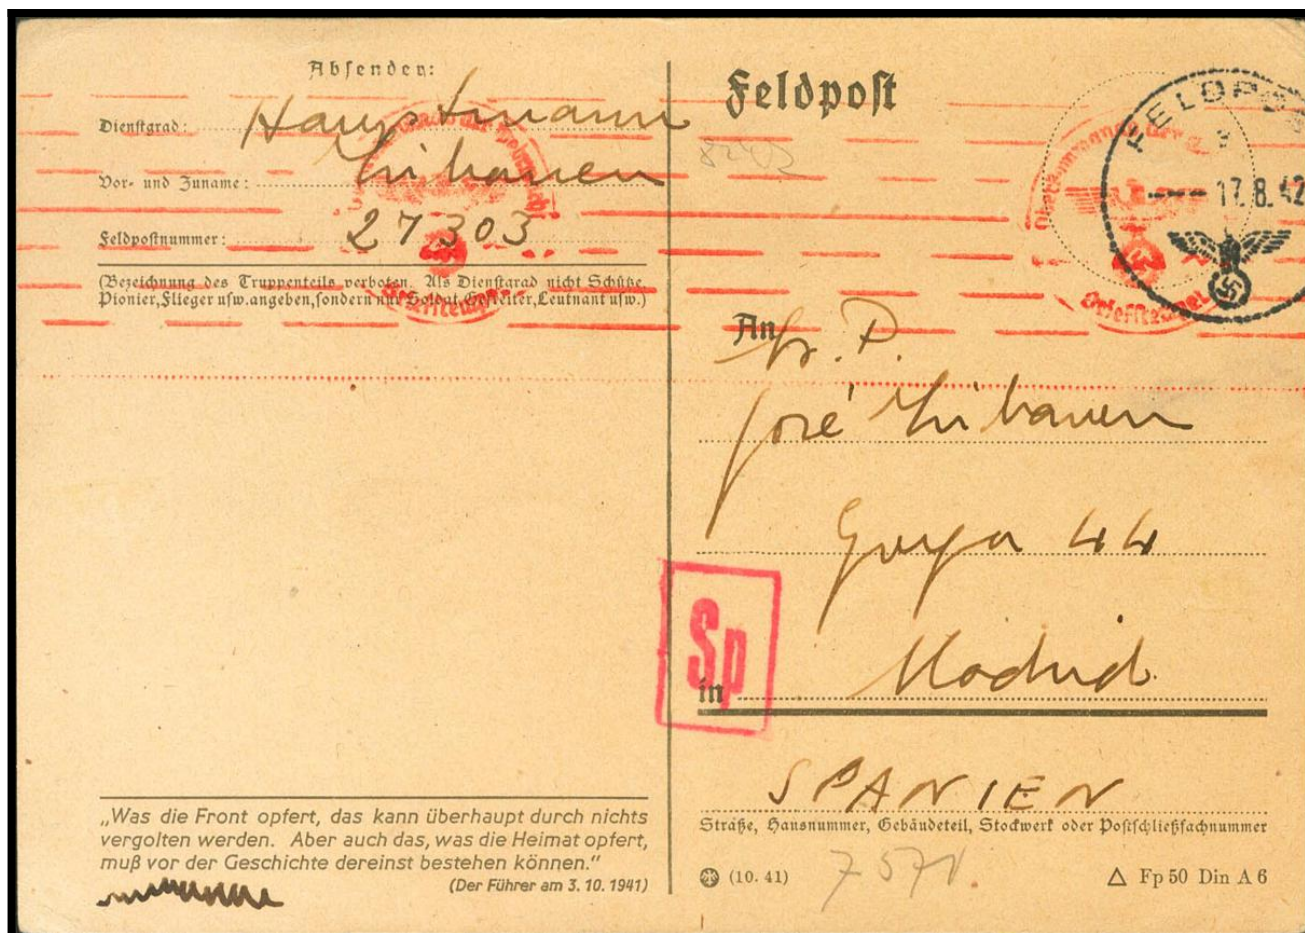 Absender:
Dienstgrad: Hauptmann
Vor- und Zuname:
Feldpostnummer: 27303
(Bezeichnung des Truppenteils verboten. Als Dienstgrad nicht Schütze,
Pionier, Flieger usw. angeben, sondern nur Soldat, Gefreiter, Leutnant usw.)
„Was die Front opfert, das kann überhaupt durch nichts
vergolten werden. Aber auch das, was die Heimat opfert,
muß vor der Geschichte dereinst bestehen können.“
(Der Führer am 3. 10. 1941)
Feldpost
FELDPOST
17.8.42
Briefstempel
An
José
Goya 44
Sp
in Madrid
SPANIEN
Straße, Hausnummer, Gebäudeteil, Stockwerk oder Postschließfachnummer
(10. 41)
Fp 50 Din A 6